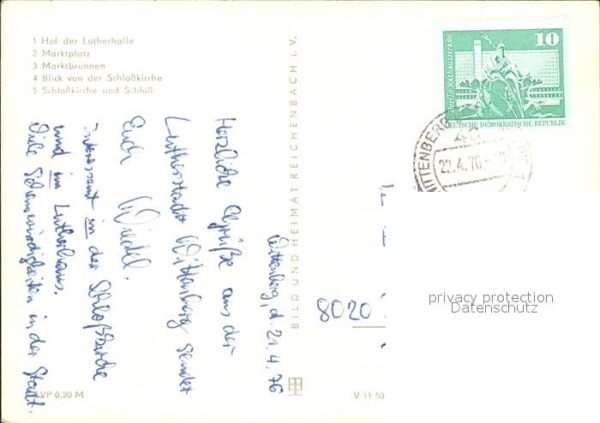 1 Hof der Lutherhalle
2 Marktplatz
3 Marktbrunnen
4 Blick von der Schloßkirche
5 Schloßkirche und Schloß
Wittenberg, d. 21.4.76
Herzliche Grüße aus der
Lutherstadt Wittenberg sendet
Euch
Interessant in der Schloßkirche
und im Lutherhaus.
Viele Sehenswürdigkeiten in der Stadt.
EVP 0,20 M
BILD UND HEIMAT REICHENBACH i. V.
V 11 50
10
Berlin, Rathausstraße
DEUTSCHE DEMOKRATISCHE REPUBLIK
WITTENBERG
22.4.76
8020
privacy protection
Datenschutz